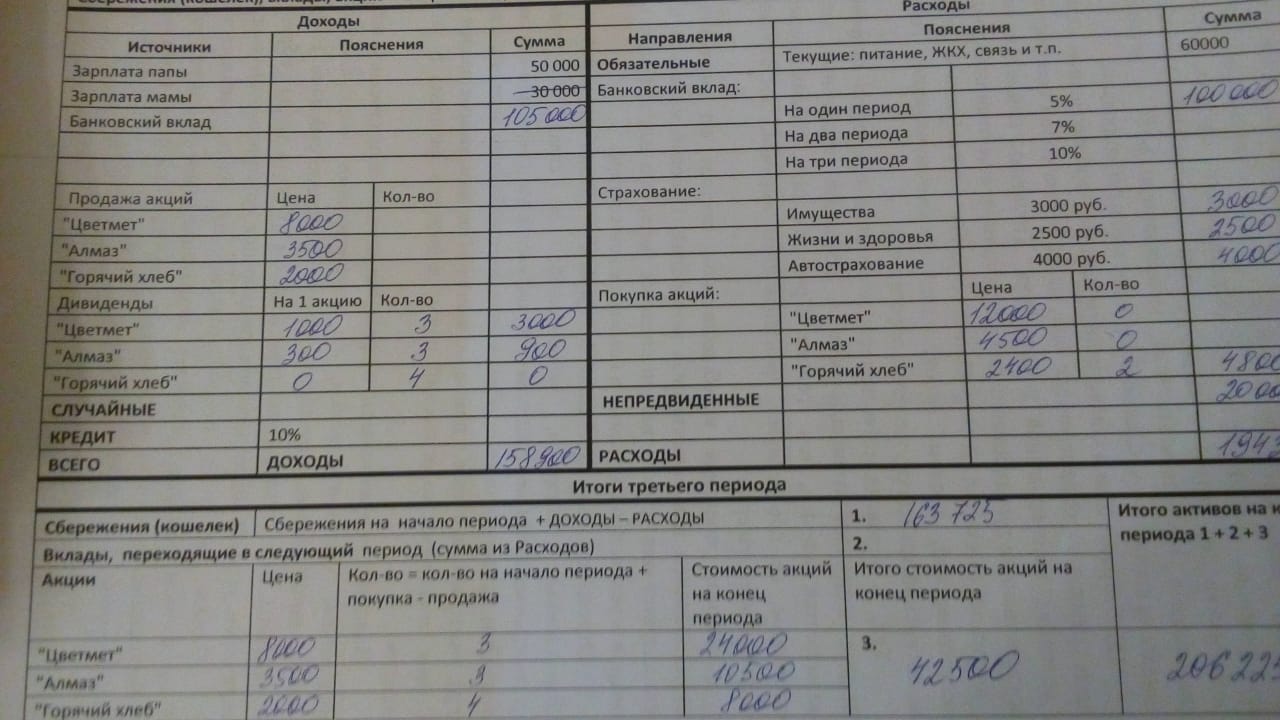 Доходы Расходы
Источники Пояснения Сумма Направления Пояснения Сумма
Зарплата папы 50 000 Обязательные Текущие: питание, ЖКХ, связь и т.п. 60000
Зарплата мамы 30 000 Банковский вклад:
Банковский вклад 105000 На один период 5% 100000
На два периода 7%
На три периода 10%
Продажа акций Цена Кол-во Страхование:
"Цветмет" 8000 Имущества 3000 руб. 3000
"Алмаз" 3500 Жизни и здоровья 2500 руб. 2500
"Горячий хлеб" 2000 Автострахование 4000 руб. 4000
Дивиденды На 1 акцию Кол-во Покупка акций: Цена Кол-во
"Цветмет" 1000 3 3000 "Цветмет" 12000 0
"Алмаз" 300 3 900 "Алмаз" 4500 0
"Горячий хлеб" 0 4 0 "Горячий хлеб" 2400 2 4800
СЛУЧАЙНЫЕ НЕПРЕДВИДЕННЫЕ 2000
КРЕДИТ 10%
ВСЕГО ДОХОДЫ 158900 РАСХОДЫ 1942
Итоги третьего периода
Сбережения (кошелек) Сбережения на начало периода + ДОХОДЫ – РАСХОДЫ 1. 163 725 Итого активов на
Вклады, переходящие в следующий период (сумма из Расходов) 2. периода 1 + 2 + 3
Акции Цена Кол-во = кол-во на начало периода + Стоимость акций Итого стоимость акций на
покупка - продажа на конец конец периода
периода
"Цветмет" 8000 3 24000 3.
"Алмаз" 3500 3 10500 42500 206 225
"Горячий хлеб" 2000 4 8000